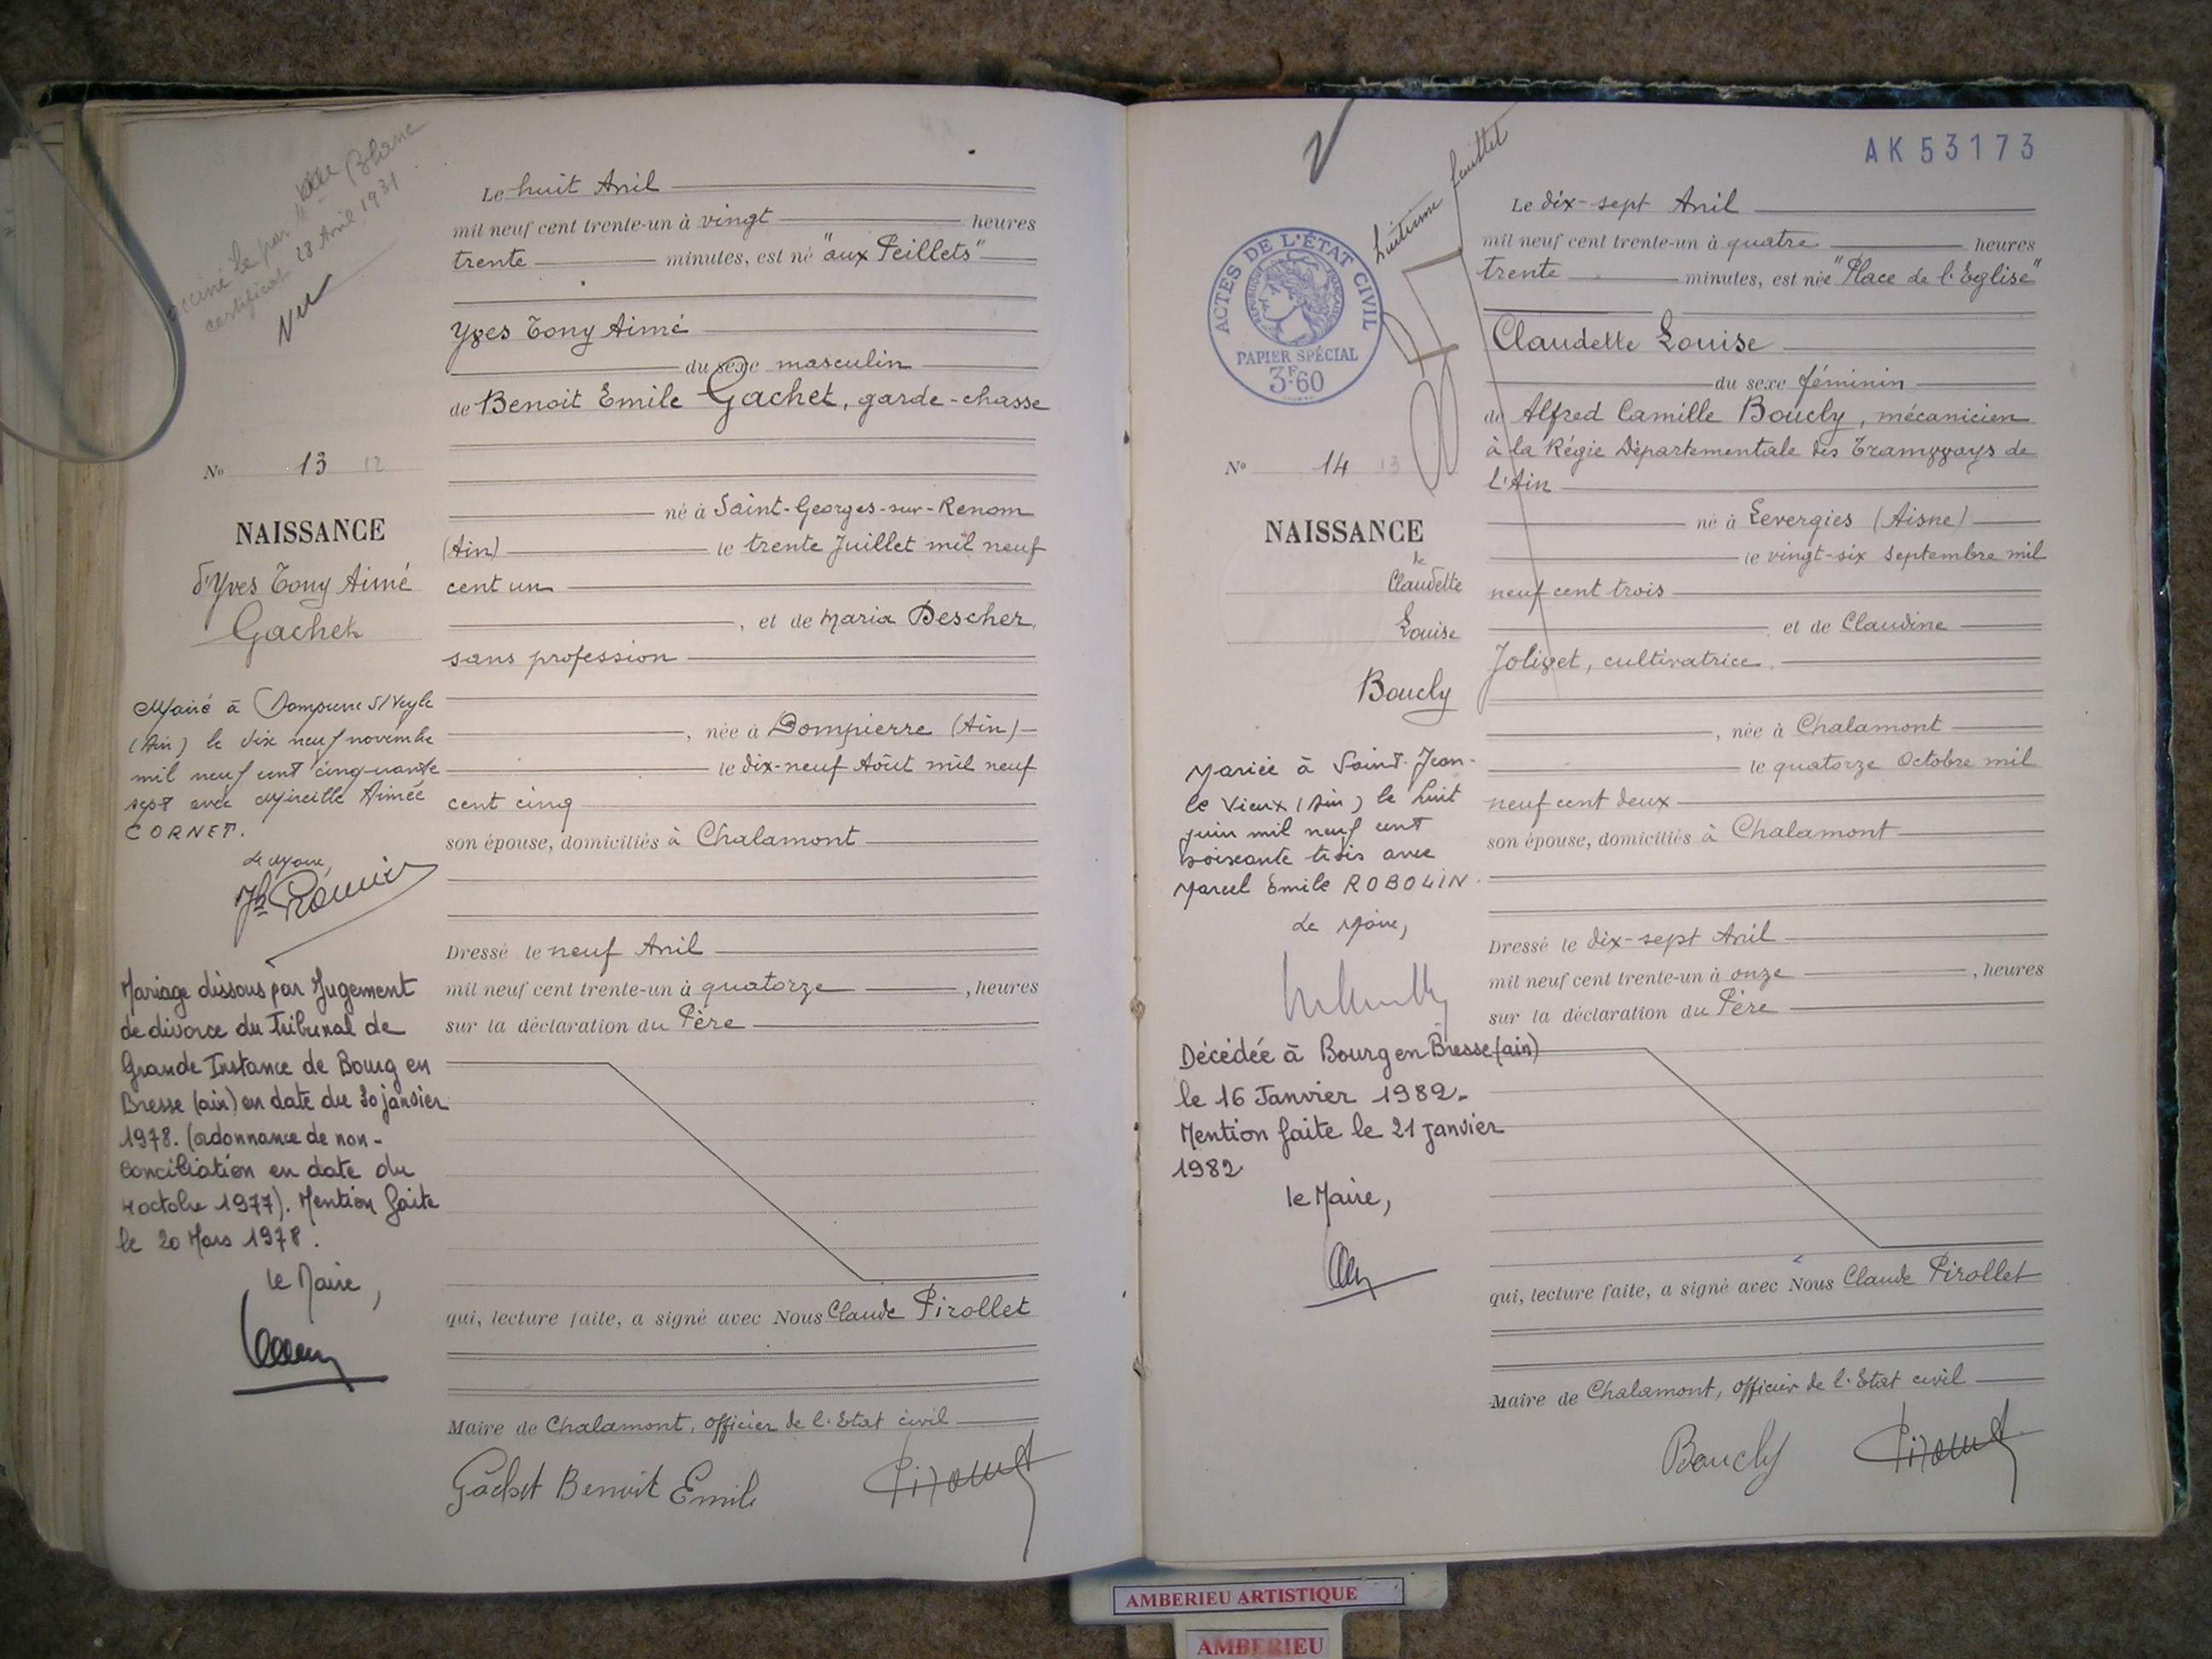 le par Mme Blanc
certificat 28 Avril 1931
Vu
Le huit Avril
mil neuf cent trente-un à vingt heures
trente minutes, est né "aux Peillets"
Yves Tony Aimé
du sexe masculin
de Benoit Emile Gachet, garde-chasse
No 13 12
NAISSANCE
d'Yves Tony Aimé
Gachet
né à Saint-Georges-sur-Renom
(Ain) le trente Juillet mil neuf
cent un
, et de Maria Descher,
sans profession
, née à Dompierre (Ain)
le dix-neuf Août mil neuf
cent cinq
son épouse, domiciliés à Chalamont
Dressé le neuf Avril
mil neuf cent trente-un à quatorze , heures
sur la déclaration du Père
qui, lecture faite, a signé avec Nous Claude Pirollet
Maire de Chalamont, officier de l'Etat civil
Gachet Benoit Emile
Pirollet
Marié à Dompierre S/Veyle
(Ain) le dix neuf novembre
mil neuf cent cinquante
sept avec Mireille Aimée
CORNET.
Le Maire,
Mariage dissous par Jugement
de divorce du Tribunal de
Grande Instance de Bourg en
Bresse (ain) en date du 30 janvier
1978. (ordonnance de non-
conciliation en date du
4 octobre 1977). Mention faite
le 20 Mars 1978.
le Maire,
huitième feuillet
AK53173
ACTES DE L'ÉTAT CIVIL
RÉPUBLIQUE FRANÇAISE
PAPIER SPÉCIAL
3F60
Le dix-sept Avril
mil neuf cent trente-un à quatre heures
trente minutes, est née "Place de l'Eglise"
Claudette Louise
du sexe féminin
de Alfred Camille Boucly, mécanicien
à la Régie Départementale des Tramways de
l'Ain
No 14 13
NAISSANCE
de
Claudette
Louise
Boucly
né à Levergies (Aisne)
le vingt-six Septembre mil
neuf cent trois
et de Claudine
Jolivet, cultivatrice,
, née à Chalamont
le quatorze Octobre mil
neuf cent deux
son épouse, domiciliés à Chalamont
Dressé le dix-sept Avril
mil neuf cent trente-un à onze , heures
sur la déclaration du Père
qui, lecture faite, a signé avec Nous Claude Pirollet
Maire de Chalamont, officier de l'Etat civil
Boucly
Pirollet
Mariée à Saint-Jean-
le Vieux (Ain) le huit
juin mil neuf cent
soixante trois avec
Marcel Emile ROBOLIN.
Le Maire,
Décédée à Bourg en Bresse (ain)
le 16 Janvier 1982.
Mention faite le 21 janvier
1982
le Maire,
AMBERIEU ARTISTIQUE
AMBERIEU